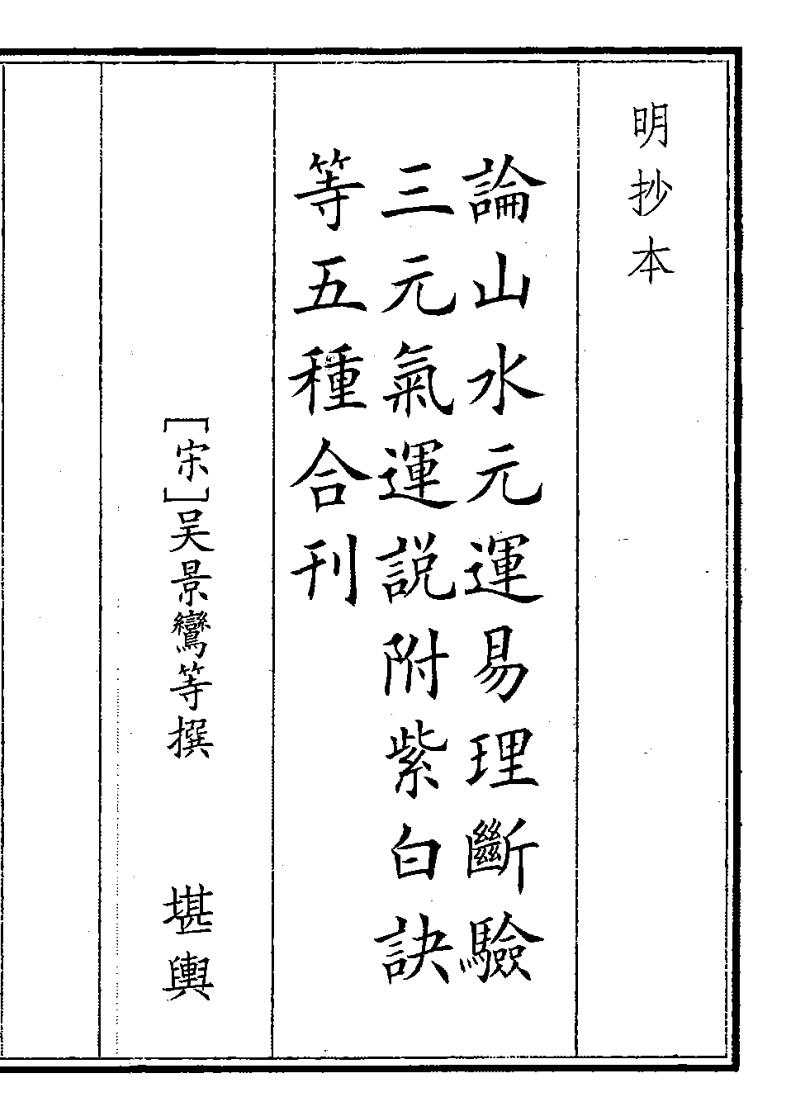 明抄本
論山水元運易理斷驗
三元氣運説附紫白訣
等五種合刊
[宋]吴景鸞等撰
堪輿